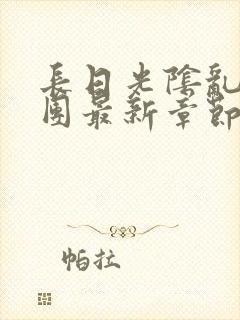 長日光陰亂
團最新章節
帕拉